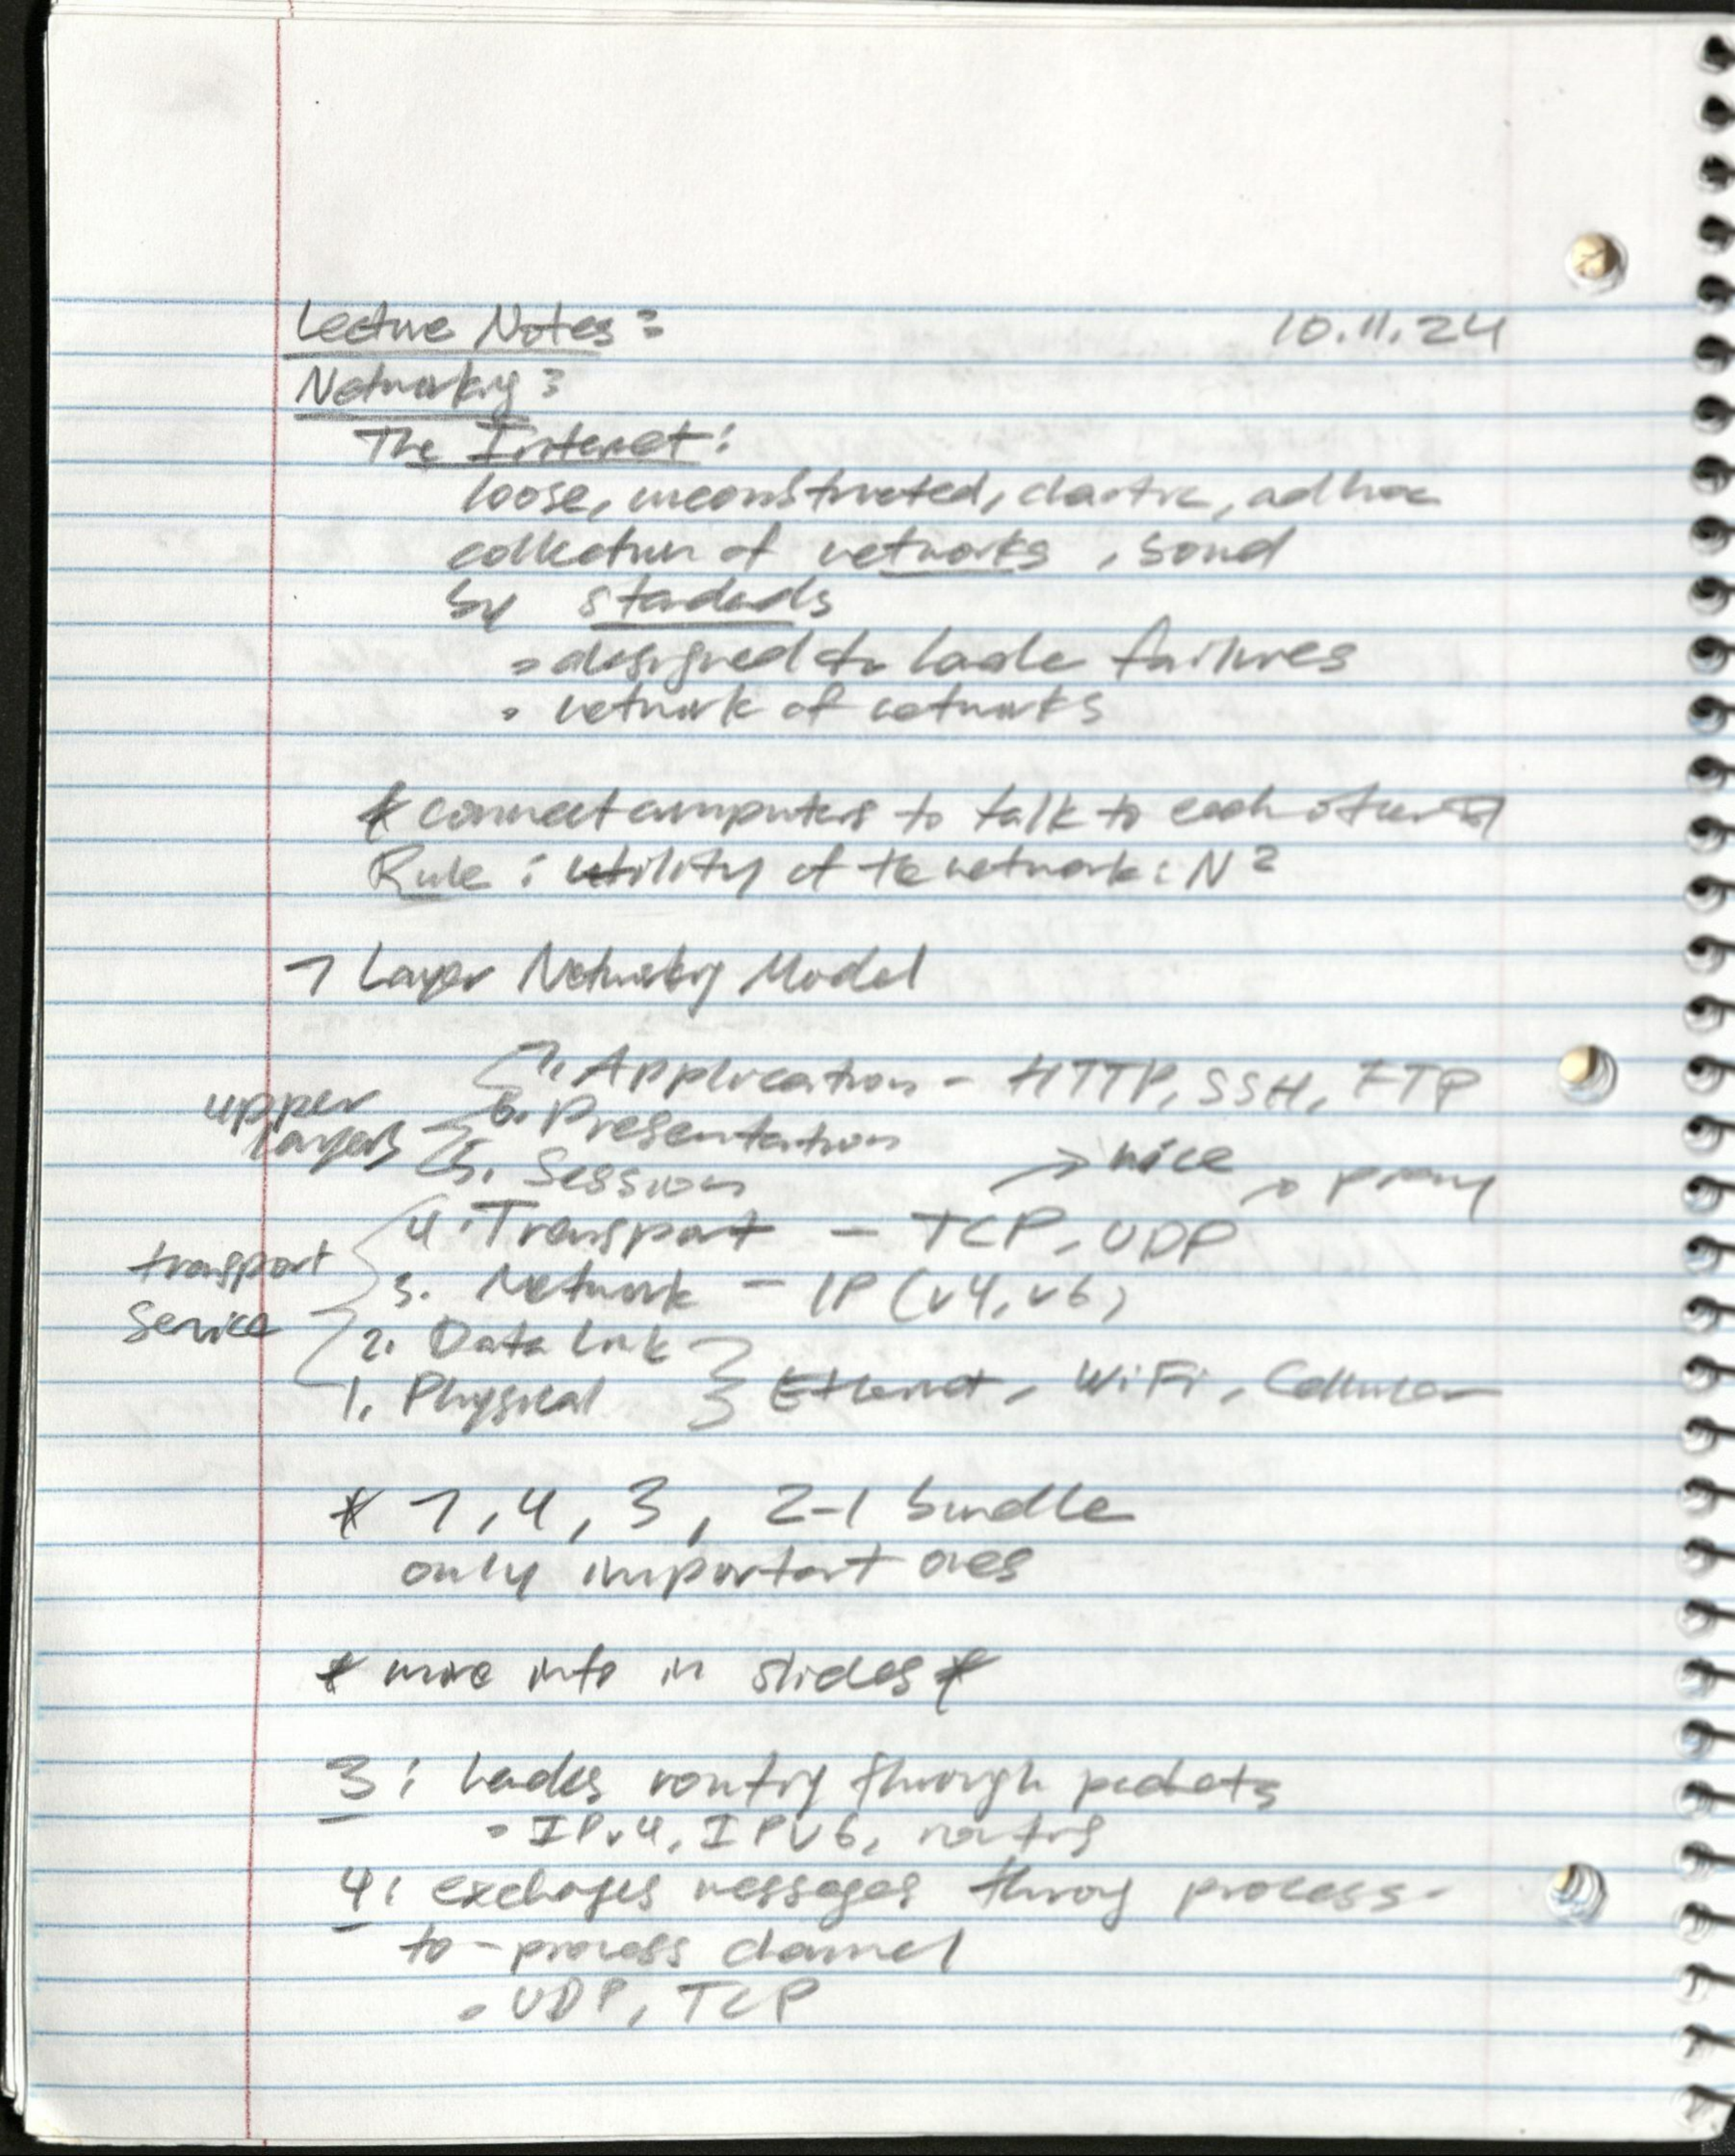 Lecture Notes: 10.11.24
Networking:
The Internet:
loose, unconstructed, chaotic, ad hoc
collection of networks, bound
by standards
• designed to handle failures
• network of networks
* connect computers to talk to each other *
Rule: utility of the network: N²
7 Layer Networking Model
7. Application - HTTP, SSH, FTP
upper layers
6. Presentation
5. Session
→ nice
4. Transport - TCP, UDP
transport service
3. Network - IP (v4, v6)
2. Data Link
1. Physical } Ethernet, WiFi, Cellular
* 7, 4, 3, 2-1 bundle
only important ones
* more info in slides *
3: handles routing through packets
• IPv4, IPV6, routing
4: exchanges messages throug process-
to-process channel
• UDP, TCP